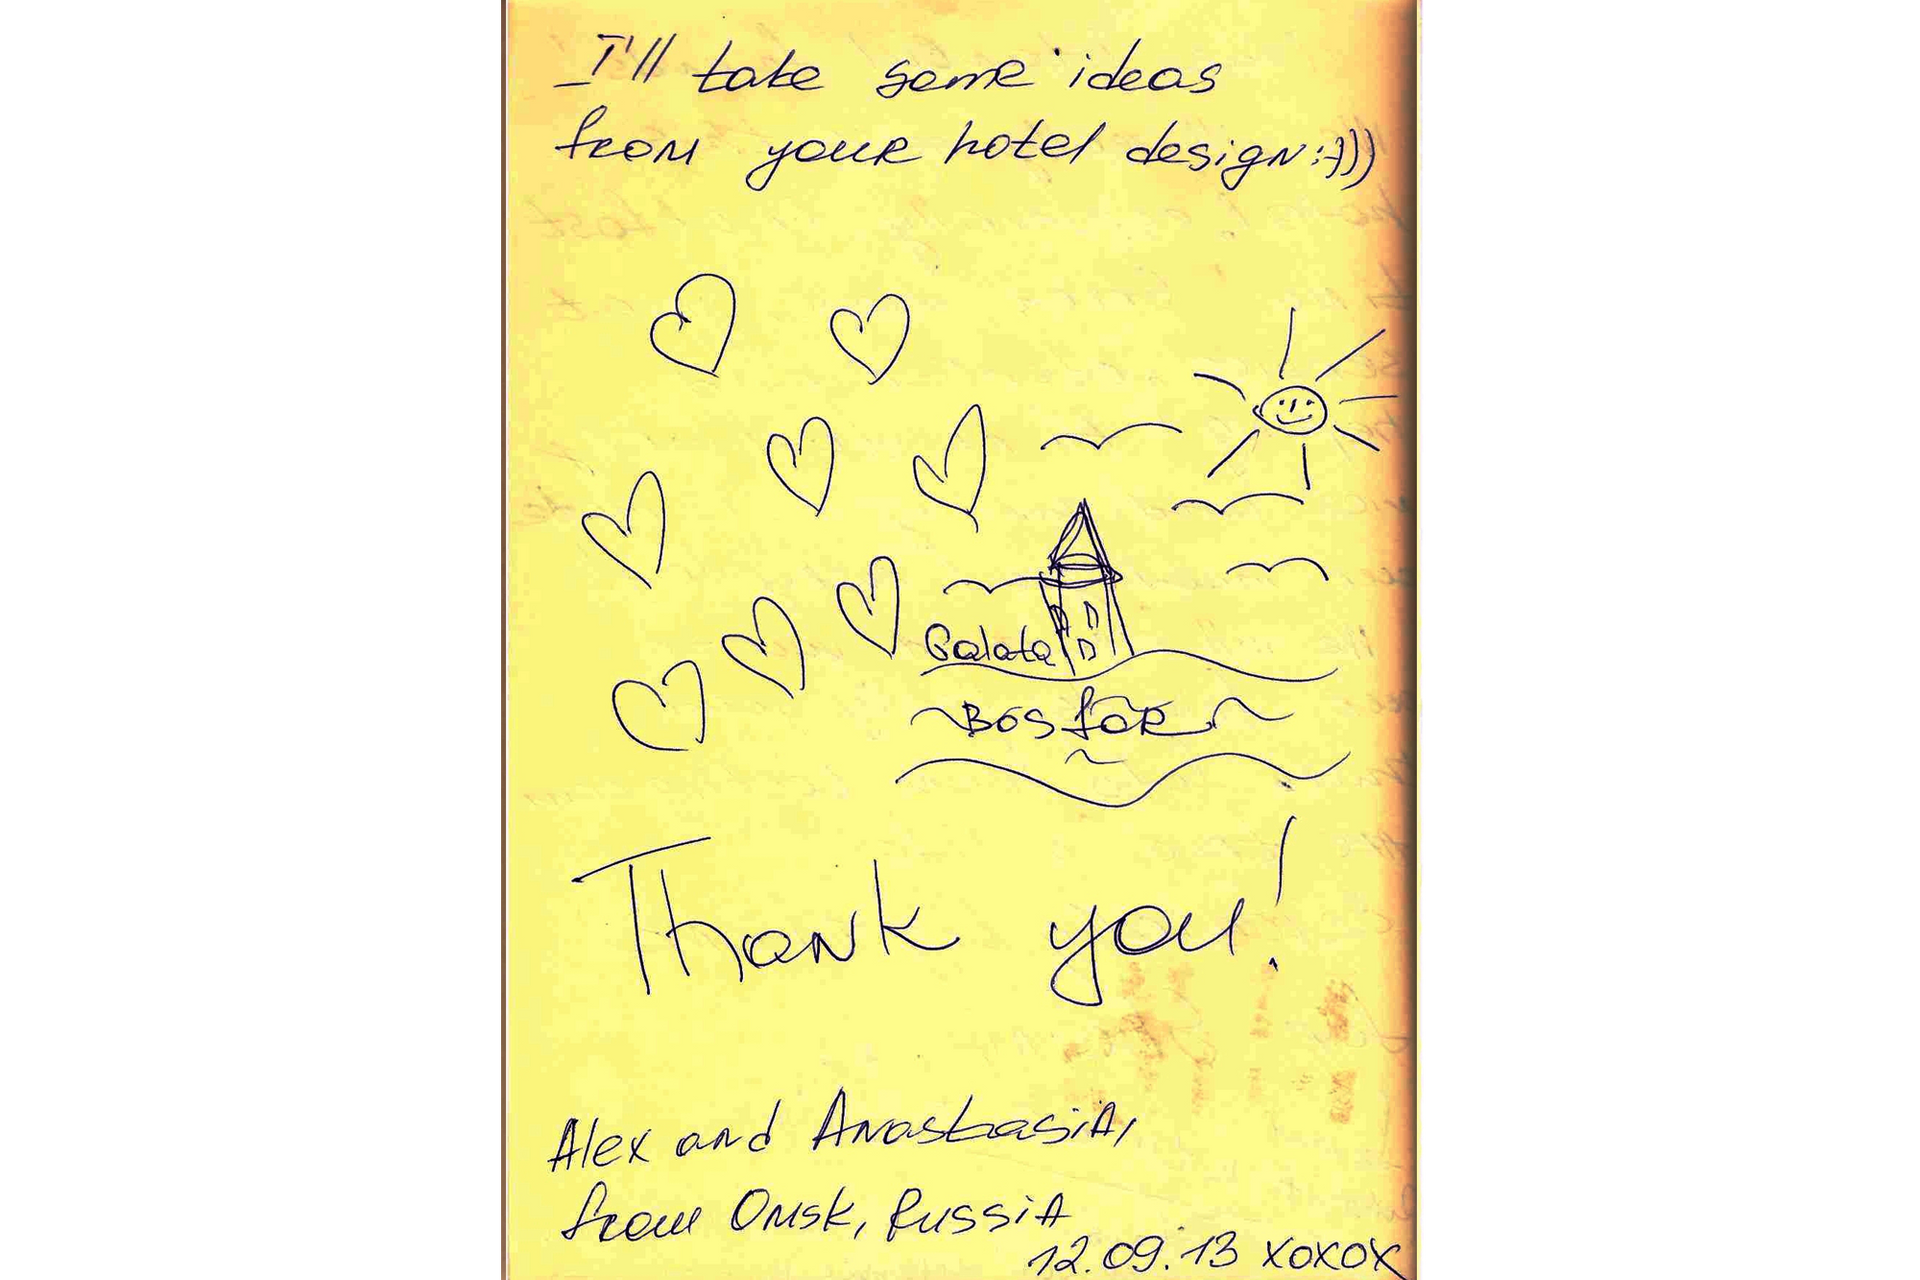 I'll take some ideas
from your hotel design:-)))
Galata
BOSfOR
Thank you!
Alex and Anastasia,
from Omsk, Russia
12.09.13 xoxox